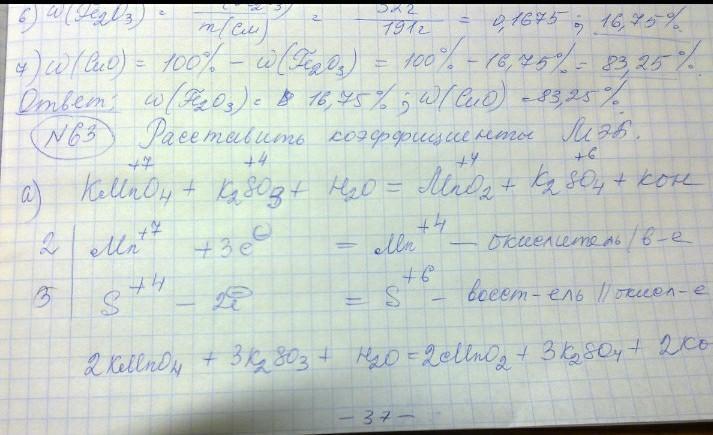 6) w(Fe₂O₃) = m(см) = 32г / 191г = 0,1675; 16,75%
7) w(CuO) = 100% - w(Fe₂O₃) = 100% - 16,75% = 83,25%
Ответ: w(Fe₂O₃) = 16,75%; w(CuO) = 83,25%
N63 Расставить коэффициенты МЭБ.
+7 +4 +4 +6
а) KMnO₄ + K₂SO₃ + H₂O = MnO₂ + K₂SO₄ + KOH
2 | Mn⁺⁷ + 3e⁻ = Mn⁺⁴ - окислитель/в-е
3 | S⁺⁴ - 2e⁻ = S⁺⁶ - восст-ель // окисл-е
2KMnO₄ + 3K₂SO₃ + H₂O = 2MnO₂ + 3K₂SO₄ + 2KO
- 37 -